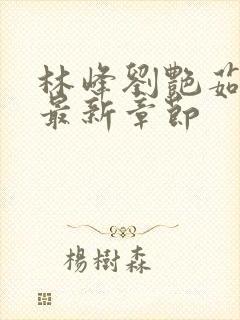 林峰劉艷茹
最新章節
楊樹森